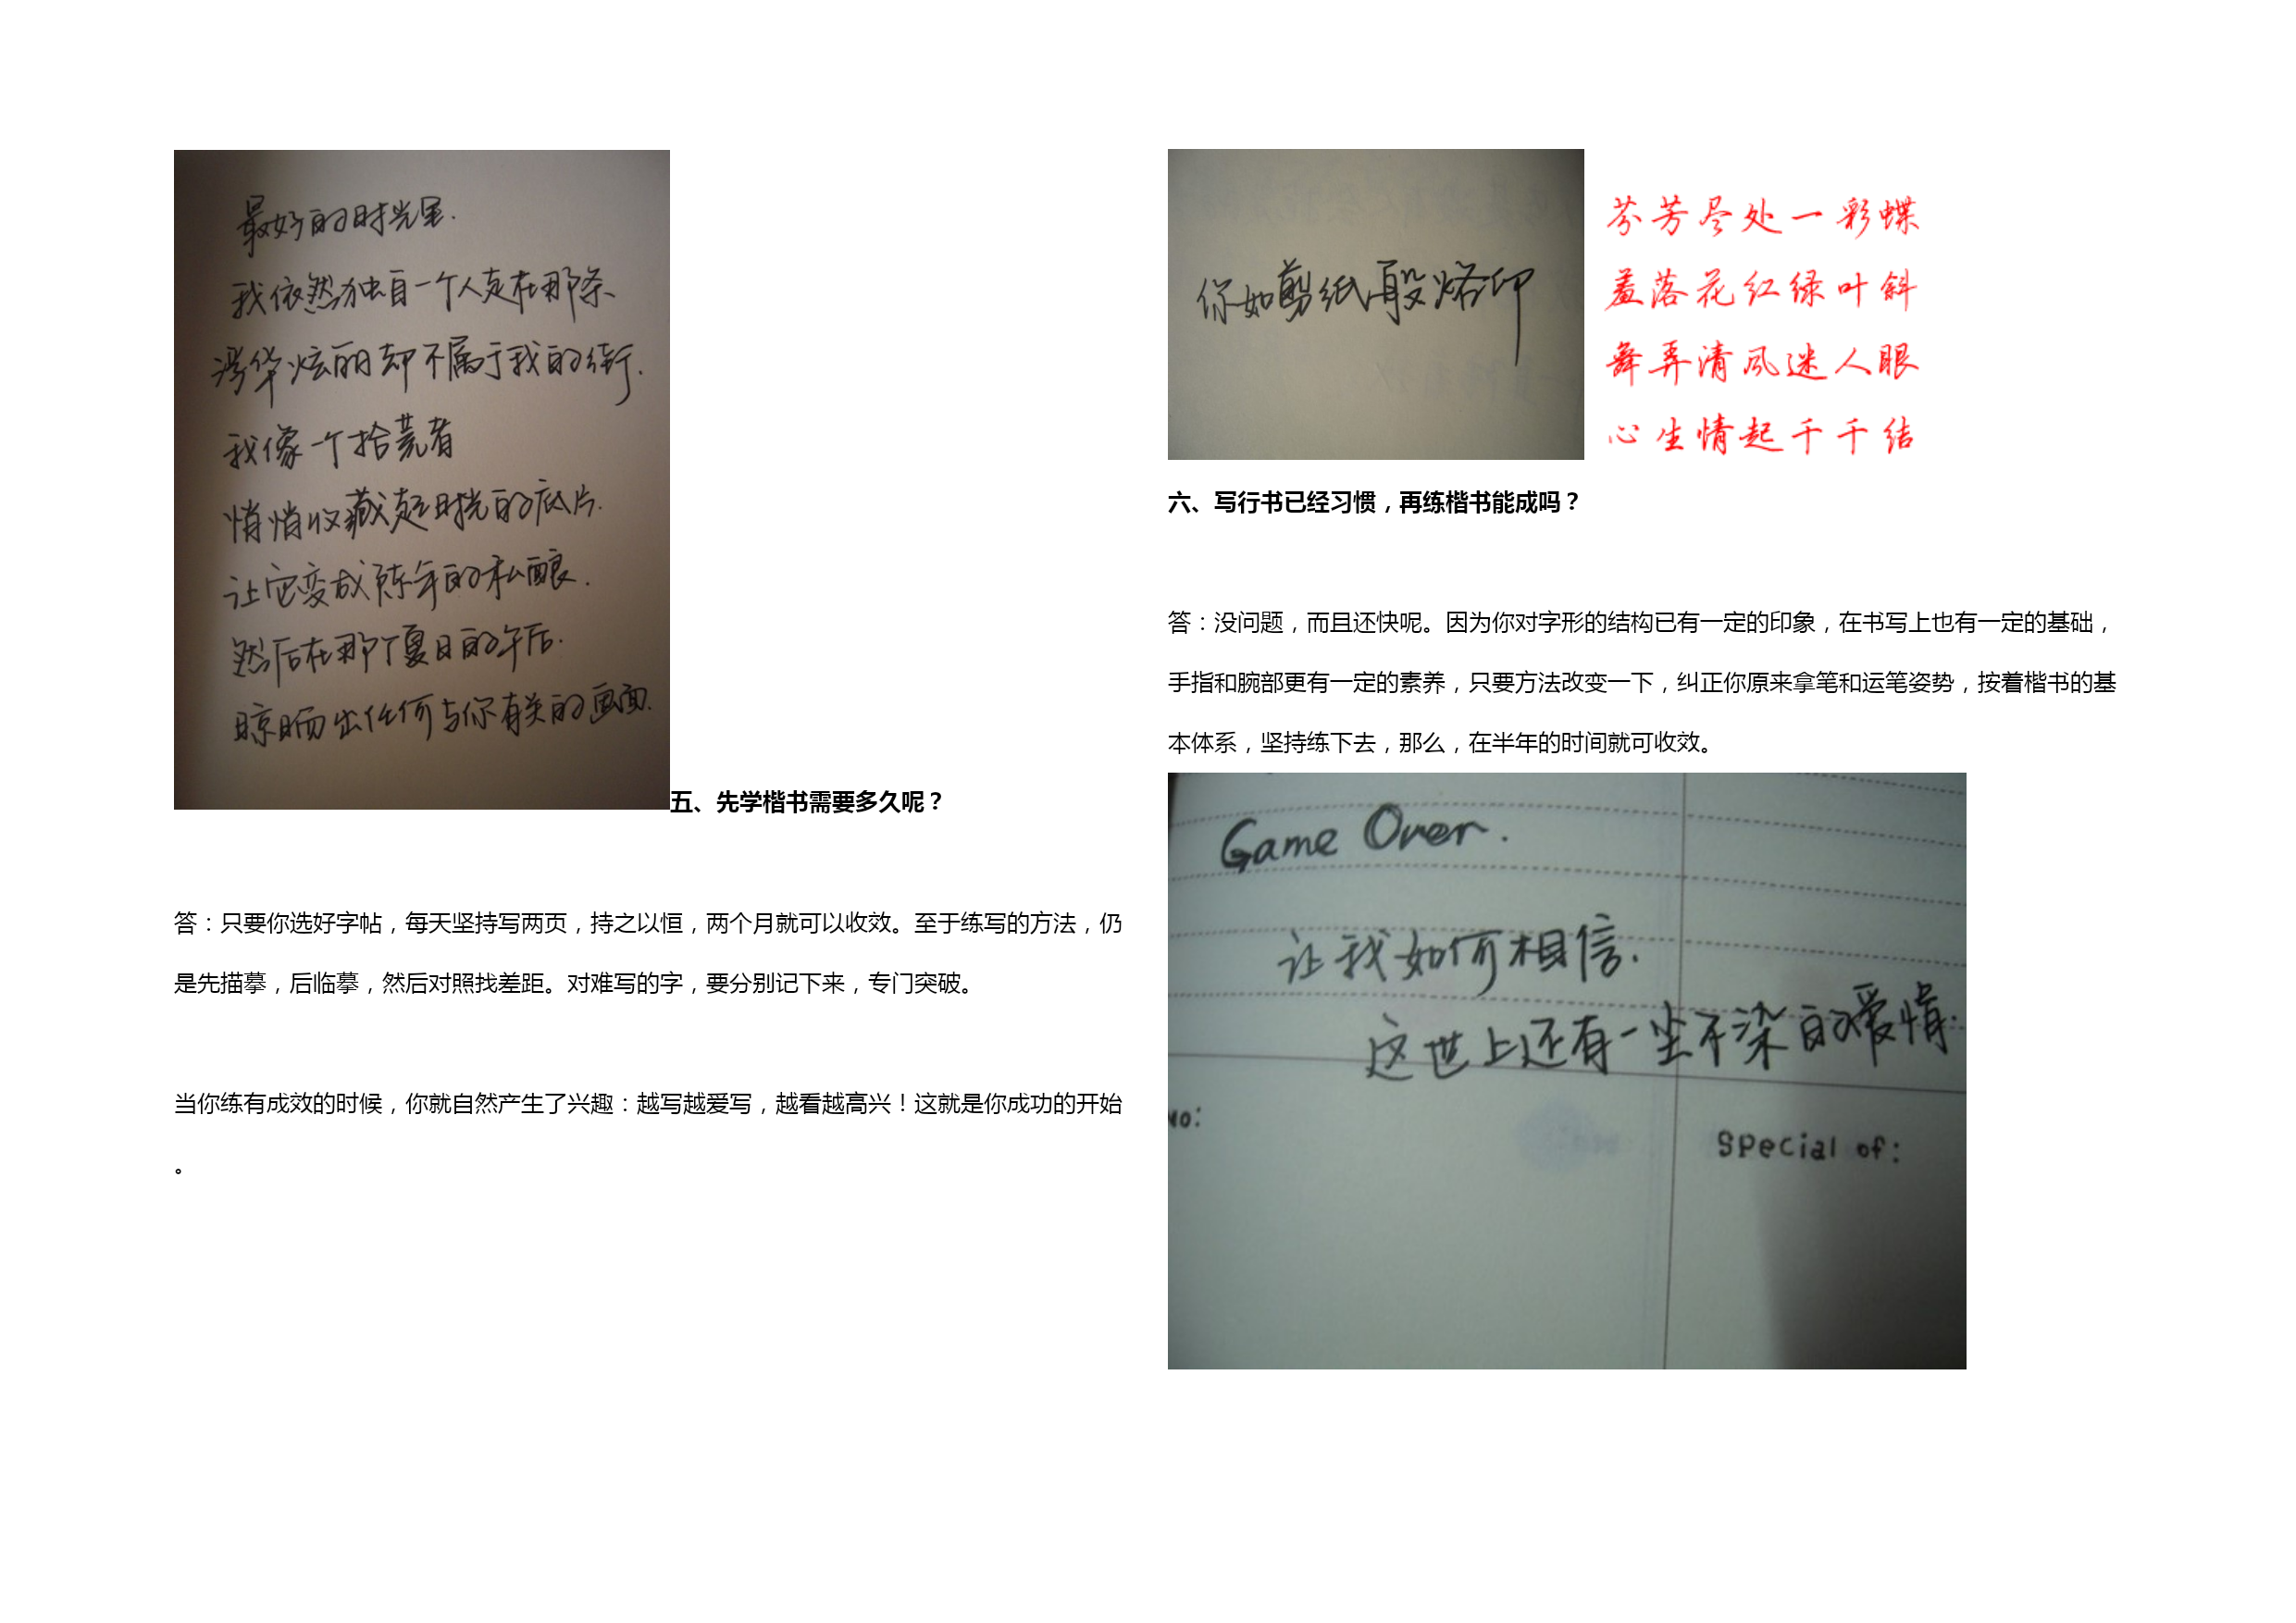 最好的时光里.
我依然独自一个人走在那条、
浮华炫丽却不属于我的街.
我像一个拾荒者
悄悄收藏起时光的底片.
让它变成陈年的私酿.
然后在那个夏日的午后.
晾晒出任何与你有关的画面.
五、先学楷书需要多久呢？
答：只要你选好字帖，每天坚持写两页，持之以恒，两个月就可以收效。至于练写的方法，仍
是先描摹，后临摹，然后对照找差距。对难写的字，要分别记下来，专门突破。
当你练有成效的时候，你就自然产生了兴趣：越写越爱写，越看越高兴！这就是你成功的开始
。
你如剪纸般烙印
芬芳尽处一彩蝶
羞落花红绿叶斜
舞弄清风迷人眼
心生情起千千结
六、写行书已经习惯，再练楷书能成吗？
答：没问题，而且还快呢。因为你对字形的结构已有一定的印象，在书写上也有一定的基础，
手指和腕部更有一定的素养，只要方法改变一下，纠正你原来拿笔和运笔姿势，按着楷书的基
本体系，坚持练下去，那么，在半年的时间就可收效。
Game Over.
让我如何相信.
这世上还有一尘不染的爱情.
No:
Special of: